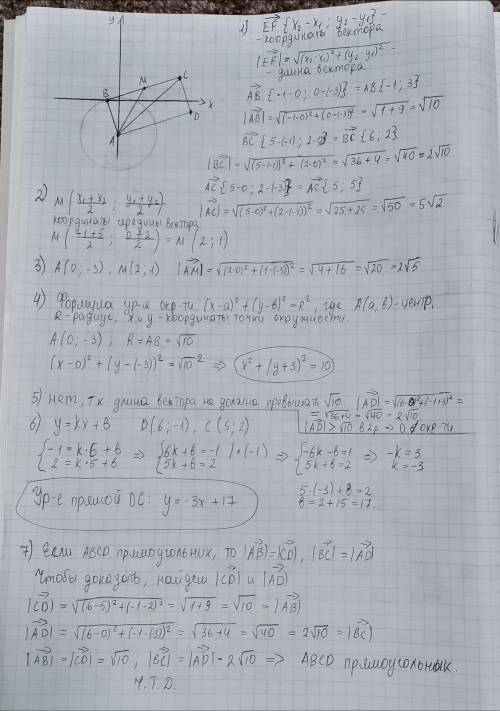 y
C
M
B
x
D
A
1) EF {x₂-x₁; y₂-y₁} -
- координаты вектора
|EF| = √((x₂-x₁)²+(y₂-y₁)²) -
- длина вектора
AB {-1-0; 0-(-3)} = AB{-1; 3}
|AB| = √((-1-0)²+(0-(-3))²) = √(1+9) = √10
BC {5-(-1); 2-0} = BC {6, 2}
|BC| = √((5-(-1))²+(2-0)²) = √(36+4) = √40 = 2√10
AC {5-0; 2-(-3)} = AC {5; 5}
|AC| = √((5-0)²+(2-(-3))²) = √(25+25) = √50 = 5√2
2) M ((x₁+x₂)/2; (y₁+y₂)/2)
координаты середины вектора
M ((-1+5)/2; (0+2)/2) = M (2; 1)
3) A(0; -3), M(2; 1) |AM| = √((2-0)²+(1-(-3))²) = √(4+16) = √20 = 2√5
4) Формула ур-я окр-ти: (x-a)²+(y-b)²=R², где A(a, b)-центр,
R-радиус, x и y -координаты точки окружности.
A(0; -3), R=AB=√10
(x-0)²+(y-(-3))²=√10² => x²+(y+3)²=10
5) Нет, т.к длина вектора не должна превышать √10. |AD| = √((6-0)²+(-1+3)²) =
= √(36+4) = √40 = 2√10
|AD| > √10 в 2р => D ∉ окр-ти
6) y=kx+b D(6; -1), C(5; 2)
{-1=k·6+b => {6k+b=-1 |·(-1) => {-6k-b=1 => -k=3
{2=k·5+b {5k+b=2 {5k+b=2 k=-3
5·(-3)+b=2
Ур-е прямой DC: y=-3x+17
b=2+15=17.
7) Если ABCD прямоугольник, то |AB|=|CD|, |BC|=|AD|
Чтобы доказать, найдем |CD| и |AD|
|CD| = √((6-5)²+(-1-2)²) = √(1+9) = √10 = |AB|
|AD| = √((6-0)²+(-1-(-3))²) = √(36+4) = √40 = 2√10 = |BC|
|AB|=|CD|=√10, |BC|=|AD|=2√10 => ABCD прямоугольник.
Ч.Т.Д.